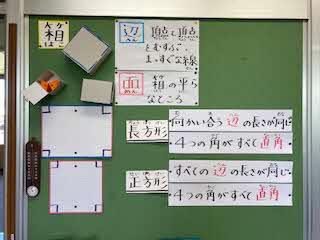 箱
はこ
辺
へん
頂点と頂点
をむすぶ、
まっすぐな線
面
めん
箱の平ら
なところ
長方形
向かい合う辺の長さが同じ
4つの角がすべて直角
正方形
すべての辺の長さが同じ
4つの角がすべて直角